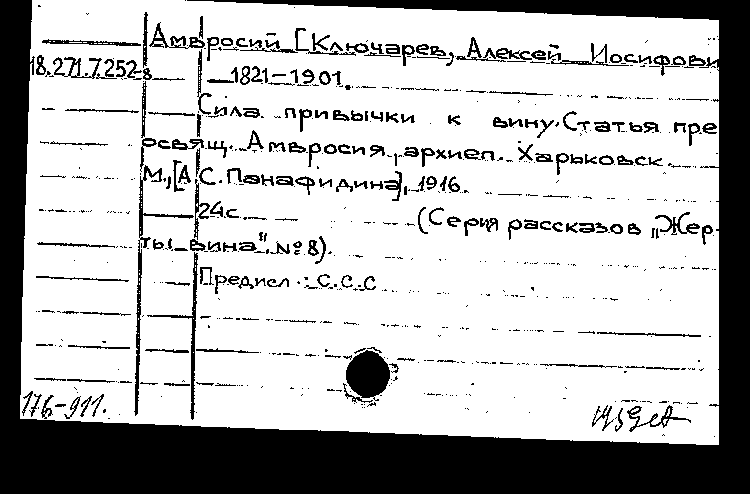 Амвросий [Ключарев, Алексей Иосифови
18.271.7.252-8 1821-1901.
Сила привычки к вину. Статья пре
освящ. Амвросия, архиеп. Харьковск.
М., [А.С. Панафидина], 1916.
24с. (Серия рассказов "Жер-
ты вина". №8).
Предисл.: С.С.С
176-911.